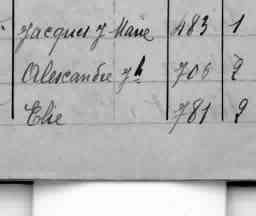 Jacques J Marie 483 1
Alexandre Jh 706 2
Elie 781 2